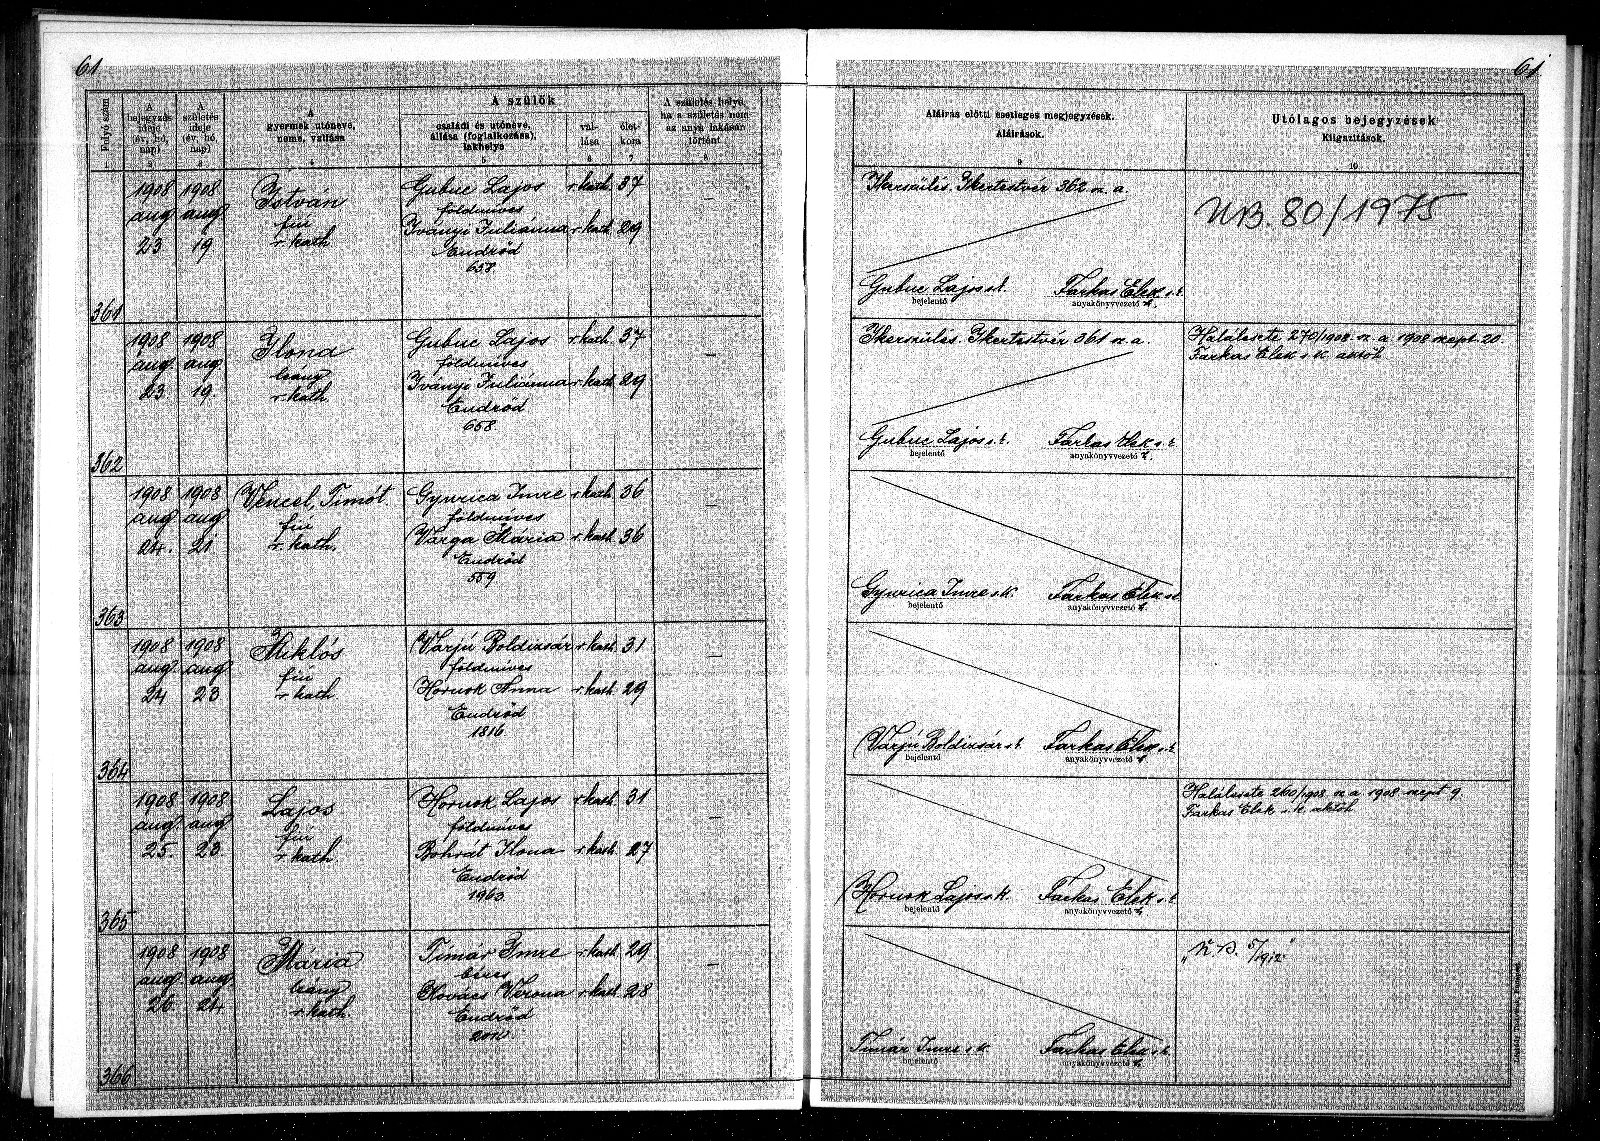 61
61
Folyó szám
A bejegyzés ideje (év, hó, nap)
A születés ideje (év, hó, nap)
A gyermek utóneve, neme, vallása
A szülők
családi és utóneve, állása (foglalkozása), lakhelye
vallása
életkora
A születés helye, ha a születés nem az anya lakásán történt
Aláírás előtti esetleges megjegyzések.
Aláírások.
Utólagos bejegyzések
Kiigazítások.
1 2 3 4 5 6 7 8 9 10
361
1908 aug 23
1908 aug 19
István
fiú
r. kath
Gubuc Lajos r. kath 37
földmíves
Iványi Juliánna r. kath 29
Endrőd
658.
—
Ikerszülés. Ikertestvér 362 sz. a.
Gubuc Lajos s. k.
bejelentő
Farkas Elek s. k.
anyakönyvvezető
UB. 80/1975
362
1908 aug. 23
1908 aug. 19.
Ilona
leány
r. kath
Gubuc Lajos r. kath. 37
földmíves
Iványi Juliánna r. kath 29
Endrőd
658.
—
Ikerszülés. Ikertestvér 361 sz. a.
Gubuc Lajos s. k.
bejelentő
Farkas Elek s. k.
anyakönyvvezető
Halálesete 270/1908 sz. a 1908 szept. 20.
Farkas Elek s. k. aktóh
363
1908 aug. 24.
1908 aug. 21
Vencel, Timót.
fiú
r. kath.
Gyurica Imre r. kath 36
földmíves
Varga Mária r. kath 36
Endrőd
559
—
Gyurica Imre s. k.
bejelentő
Farkas Elek s. k.
anyakönyvvezető
364
1908 aug. 24
1908 aug. 23
Miklós
fiú
r. kath
Varjú Boldizsár r. kath. 31
földmíves
Hornok Anna r. kath 29
Endrőd
1816.
—
Varjú Boldizsár s. k.
bejelentő
Farkas Elek s. k.
anyakönyvvezető
365
1908 aug. 25.
1908 aug. 23
Lajos
fiú
r. kath
Hornok Lajos r. kath 31
földmíves
Bohrát Ilona r. kath. 27
Endrőd
1963.
—
Hornok Lajos s. k.
bejelentő
Farkas Elek s. k.
anyakönyvvezető
Halálesete 260/1908 sz. a 1908 szept 9.
Farkas Elek s. k. aktóh
366
1908 aug. 26.
1908 aug. 24.
Mária
leány
r. kath.
Tímár Imre r. kath 29
béres
Kovács Verona r. kath 28
Endrőd
—
Tímár Imre s. k.
bejelentő
Farkas Elek s. k.
anyakönyvvezető
5/1912